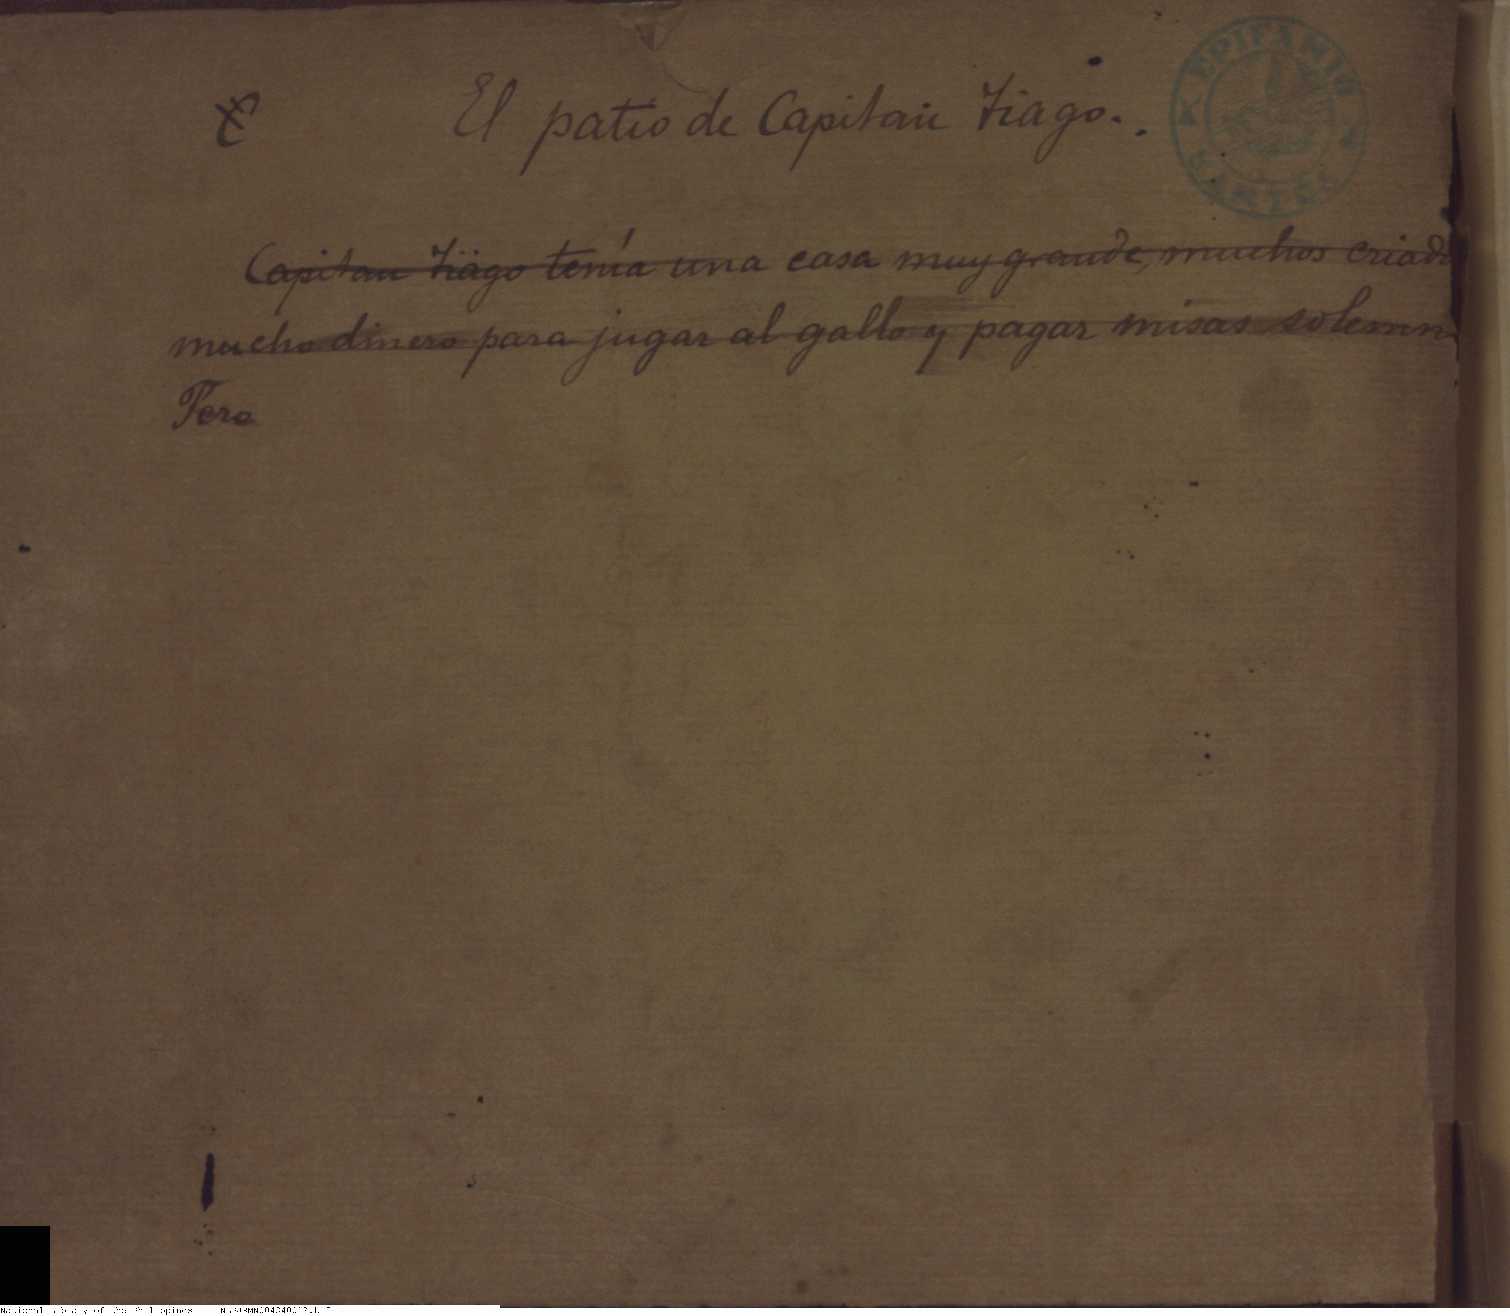 El patio de Capitan Tiago.
EPIFANIO
Capitan Tiago tenía una casa muy grande, muchos criado
mucho dinero para jugar al gallo y pagar misas solemn
Pero
National Library of the Philippines